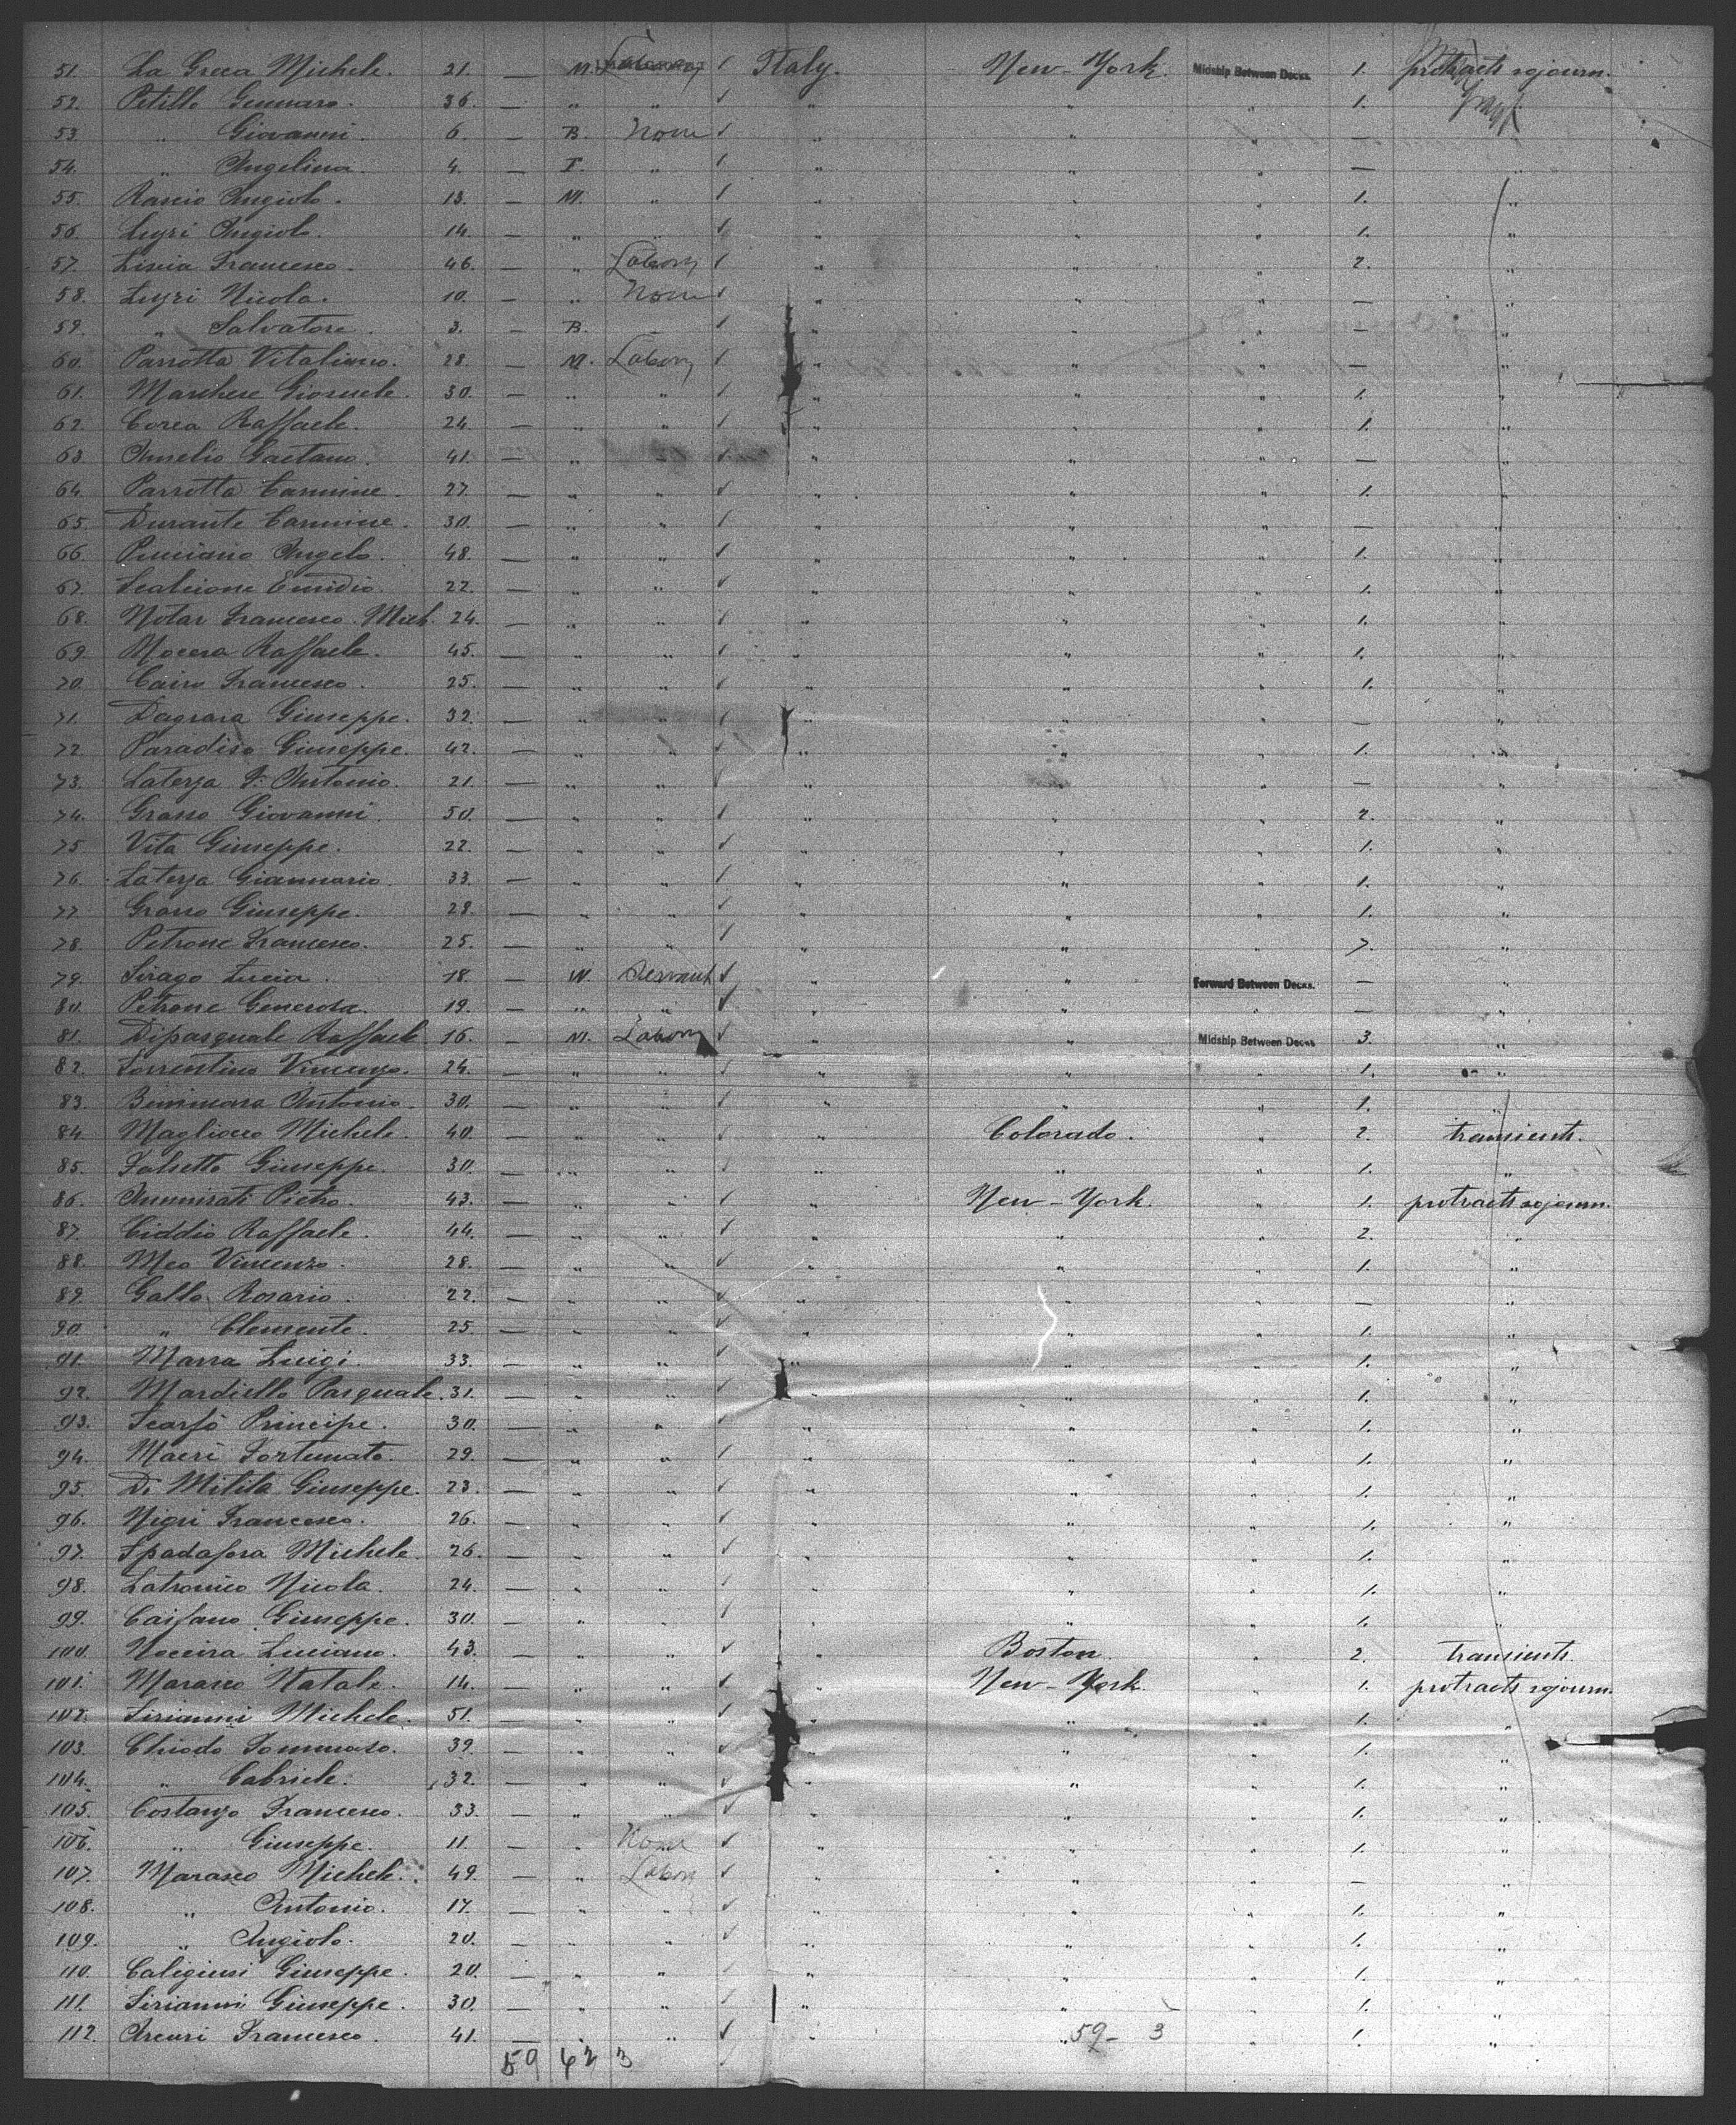 51. La Greca Michele. 21. — M. Italy. New-York. Midship Between Decks. 1. protracts sojourn.
52. Petillo Gennaro. 36. — " " " " " 1.
53. " Giovanni. 6. — B. None " " " —
54. " Angelina. 4. — F. " " " " —
55. Rascio Angiolo. 13. — M. " " " " 1. "
56. Luzzi Angiolo. 14. — " " " " " 1. "
57. Liscia Francesco. 46. — " Labory " " " 2. "
58. Luzzi Nicola. 10. — " None " " " — "
59. " Salvatore. 3. — B. " " " — "
60. Parrotta Vitaliano. 28. — M. Labory " " " — "
61. Marchese Giosuele. 30. — " " " " " 1. "
62. Corea Raffaele. 24. — " " " " " 1. "
63. Amelio Gaetano. 41. — " " " " " — "
64. Parrotta Carmine. 27. — " " " " " 1. "
65. Durante Carmine. 30. — " " " " " — "
66. Angelo. 48. — " " " " " 1. "
67. Scalcione Emidio. 22. — " " " " " 1. "
68. Notar Francesco Mich. 24. — " " " " " 1. "
69. Nocera Raffaele. 45. — " " " " " 1. "
70. Cairo Francesco. 25. — " " " " " 1. "
71. Dagrara Giuseppe. 32. — " " " " " — "
72. Paradiso Giuseppe. 42. — " " " " " 1. "
73. Laterza F. Antonio. 21. — " " " " " — "
74. Grasso Giovanni. 50. — " " " " " 2. "
75. Vita Giuseppe. 22. — " " " " " 1. "
76. Laterza Giannario. 33. — " " " " " 1. "
77. Grosso Giuseppe. 28. — " " " " " 1. "
78. Petrone Francesco. 25. — " " " " " 7. "
79. Sirago Lucia. 18. — W. Servant " " Forward Between Decks. — "
80. Petrone Generosa. 19. — " " " " " — "
81. Dipasquale Raffaele. 16. — M. Labory " " Midship Between Decks 3. "
82. Sorrentino Vincenzo. 24. — " " " " " 1. "
83. Antonio. 30. — " " " " " 1. "
84. Magliocco Michele. 40. — " " " Colorado. " 2. transients.
85. Falsetto Giuseppe. 30. — " " " " " 1. "
86. Ammirati Pietro. 43. — " " " New-York. " 1. protracts sojourn.
87. Ciddio Raffaele. 44. — " " " " " 2. "
88. Meo Vincenzo. 28. — " " " " " 1. "
89. Gallo Rosario. 22. — " " " " " — "
90. " Clemente. 25. — " " " " " 1. "
91. Marra Luigi. 33. — " " " " " 1. "
92. Mardiello Pasquale. 31. — " " " " " 1. "
93. Scarfò Principe. 30. — " " " " " 1. "
94. Macrì Fortunato. 29. — " " " " " 1. "
95. Di Milita Giuseppe. 23. — " " " " " 1. "
96. Nigri Francesco. 26. — " " " " " 1. "
97. Spadafora Michele. 26. — " " " " " 1. "
98. Latronico Nicola. 24. — " " " " " 1. "
99. Caifano Giuseppe. 30. — " " " " " 1. "
100. Noceira Luciano. 43. — " " " Boston. " 2. transients.
101. Marasco Natale. 14. — " " " New-York. " 1. protracts sojourn.
102. Sirianni Michele. 51. — " " " " " 1. "
103. Chiodo Tommaso. 39. — " " " " " 1. "
104. " Gabriele. 32. — " " " " " 1. "
105. Costanzo Francesco. 33. — " " " " " 1. "
106. " Giuseppe. 11. — " None " " " 1. "
107. Marasco Michele. 49. — " Labory " " " — "
108. " Antonio. 17. — " " " " " 1. "
109. " Angiolo. 20. — " " " " " 1. "
110. Caligiuri Giuseppe. 20. — " " " " " 1. "
111. Sirianni Giuseppe. 30. — " " " " " 1. "
112. Arcuri Francesco. 41. — " " " " 59- 3 " 1. "
59 62 3